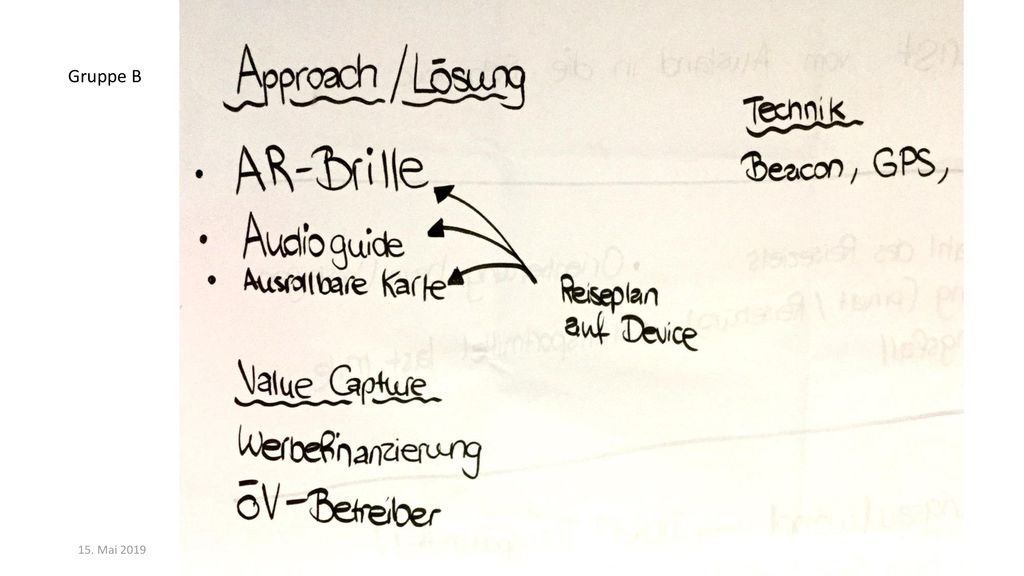 Gruppe B
Approach / Lösung
• AR-Brille
• Audioguide
• Ausrollbare Karte
Reiseplan
auf Device
Technik
Beacon, GPS,
Value Capture
Werbefinanzierung
ÖV-Betreiber
15. Mai 2019